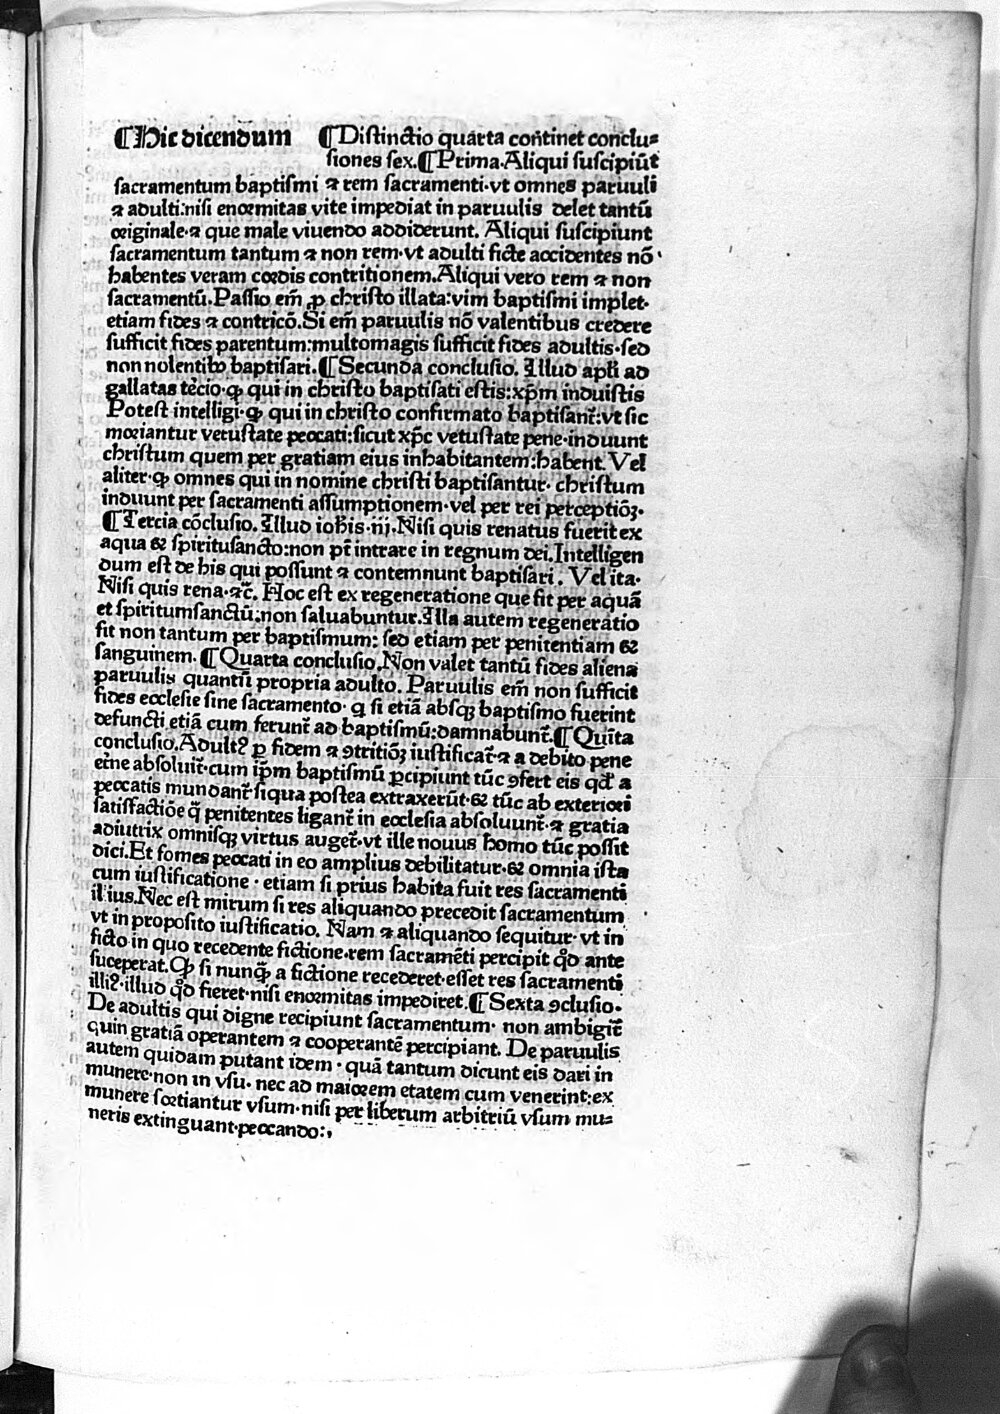 ¶Hic dicendum ¶Distinctio quarta continet conclu⸗
siones sex.¶Prima.Aliqui suscipiũt
sacramentum baptismi ⁊ rem sacramenti·vt omnes paruuli
⁊ adulti:nisi enormitas vite impediat in paruulis delet tantũ
originale·⁊ que male viuendo addiderunt. Aliqui suscipiunt
sacramentum tantum ⁊ non rem·vt adulti ficte accidentes nō
habentes veram cordis contritionem.Aliqui vero rem ⁊ non
sacramentū.Passio em̄ ꝑ christo illata:vim baptismi implet·
etiam fides ⁊ contricō.Si em̄ paruulis nō valentibus credere
sufficit fides parentum:multomagis sufficit fides adultis·sed
non nolentibꝰ baptisari.¶Secunda conclusio. Illud apl̄i ad
gallatas tècio·ꝙ qui in christo baptisati estis:xp̄m induistis
Potest intelligi·ꝙ qui in christo confirmato baptisant̄:vt sic
moriantur vetustate peccati:sicut xp̄c vetustate pene·induunt
christum quem per gratiam eius inhabitantem:habent. Vel
aliter·ꝙ omnes qui in nomine christi baptisantur· christum
induunt per sacramenti assumptionem·vel per rei perceptiōꝫ·
¶Tercia cōclusio.Illud ioh̄is·iij.Nisi quis renatus fuerit ex
aqua & spiritusancto:non pt̄ intrare in regnum dei.Intelligen
dum est de his qui possunt ⁊ contemnunt baptisari. Vel ita·
Nisi quis rena·⁊c̄. Hoc est ex regeneratione que fit per aquã
et spiritumsanctū:non saluabuntur.Illa autem regeneratio
fit non tantum per baptismum: sed etiam per penitentiam &
sanguinem.¶Quarta conclusio.Non valet tantū fides aliena
paruulis quantū propria adulto. Paruulis em̄ non sufficit
fides ecclesie sine sacramento· q si etiã absqꝫ baptismo fuerint
defuncti etiã cum ferunt̄ ad baptismū:damnabunt̄.¶Quīta
conclusio.Adultꝰ ꝑ fidem ⁊ ꝯtritiōꝫ iustificat̄·⁊ a debito pene
et̄ne absoluit̄·cum ip̄m baptismū ꝑcipiunt tūc ꝯfert eis qd̄ a
peccatis mundant̄ siqua postea extraxerūt·& tūc ab exteriori
satisfactiōe q̄ penitentes ligant̄ in ecclesia absoluunt̄·⁊ gratia
adiutrix omnisqꝫ virtus auget̄·vt ille nouus homo tūc possit
dici.Et fomes peccati in eo amplius debilitatur·& omnia ista
cum iustificatione · etiam si prius habita fuit res sacramenti
illius.Nec est mirum si res aliquando precedit sacramentum
vt in proposito iustificatio. Nam ⁊ aliquando sequitur· vt in
ficto·in quo recedente fictione·rem sacramēti percipit qđ ante
susceperat.Ꝙ si nunqꝫ̄ a fictione recederet·esset res sacramenti
illiꝰ·illud qđ fieret·nisi enormitas impediret.¶Sexta ꝯclusio.
De adultis qui digne recipiunt sacramentum· non ambigit̄
quin gratiã operantem ⁊ cooperantē percipiant. De paruulis
autem quidam putant idem · quã tantum dicunt eis dari in
munere·non in vsu· nec ad maiorem etatem cum venerint:ex
munere sortiantur vsum·nisi per liberum arbitriū vsum mu⸗
neris extinguant·peccando:,